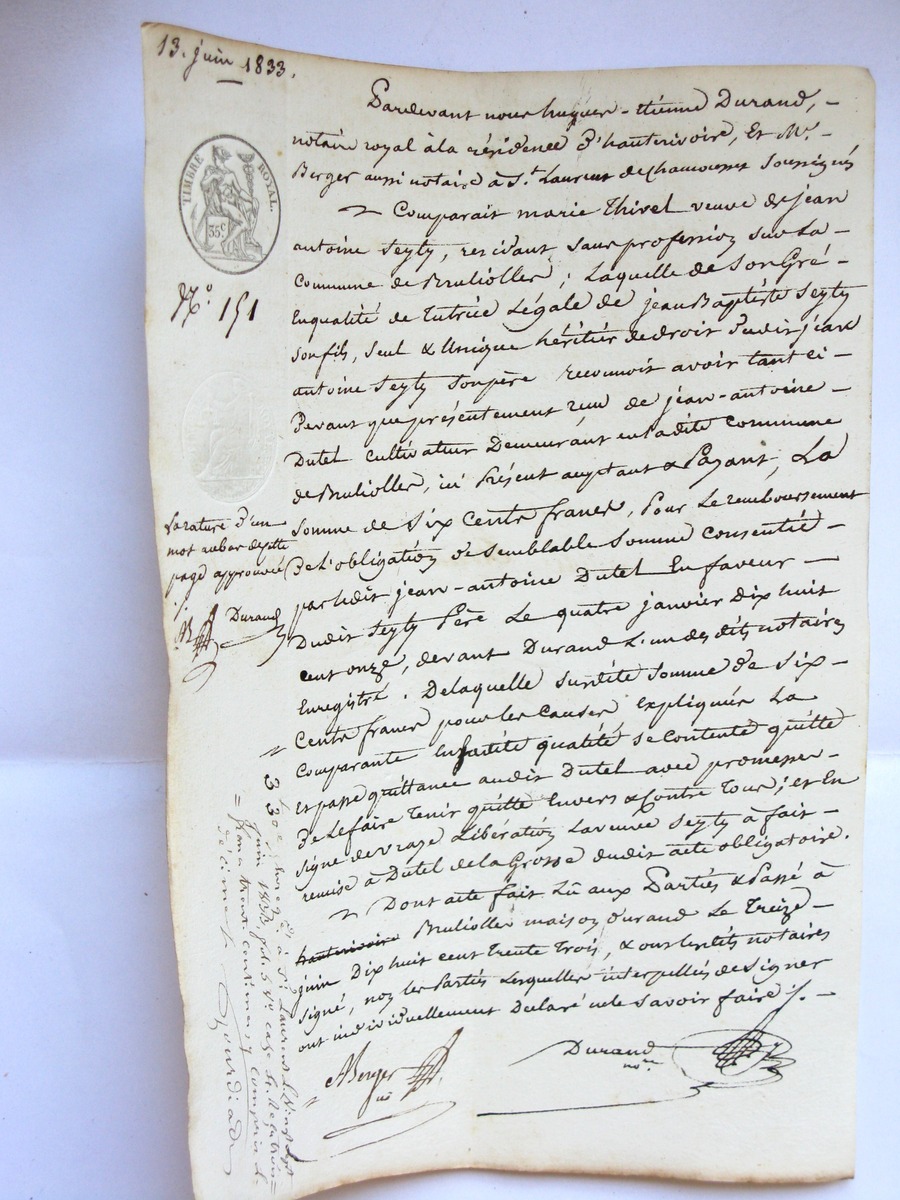 13. juin 1833.
Pardevant nous hugues-étienne Durand,
notaire royal à la résidence d'hauterivoire, Et Me.
Berger aussi notaire à St. Laurent de Chamousset Soussignés
Comparait marie Thivel veuve de jean
antoine Seyty, residant sans profession sur La
Commune de Brulioller ; Laquelle de Son Gré
Enqualité de Tutrice Légale de jean Baptiste Seyty
son fils, seul & Unique héritier dedroit dudit jean
antoine Seyty sonpère reconnoit avoir tant ci
Devant que présentement recu de jean-antoine
Dutel cultivateur Demeurant enladite commune
de Brulioller, ici Présent acptant & Payant, La
Somme de Six Cents francs, Pour Le remboursement
De l'obligation de semblable Somme consentie
par ledit jean-antoine Dutel En faveur
Dudit Seyty Père Le quatre janvier dix huit
cent onze, devant Durand L'un des dits notaires
Enregistré. Delaquelle susdite Somme de Six
Cents francs pour les Causes Expliquées La
Comparante Ensadite qualité se contente quitte
Et passe quittance audit Dutel avec promesse
De Le faire Tenir quitte Envers & Contre Tous ; et En
signe de vraye Libération La veuve Seyty à fait
remise à Dutel de la Grosse dudit acte obligatoire.
Dont acte fait Lû aux Parties & Passé à
hauterivoire Brulioller maison durand Le Treize
juin Dix huit cent Trente Trois, & ont lesdits notaires
Signé, non les Parties Lesquelles interpellés de signer
ont individuellement Déclaré ne le savoir faire
Berger
Durand
nore
TIMBRE ROYAL.
35c
No 151
La rature d'un
mot aubas depte
page approuvée
Durand
Enregistré à St Laurent Le Vingt Sept
juin 1833, fol. 5 Vo case
francs trente centimes compris le
décime